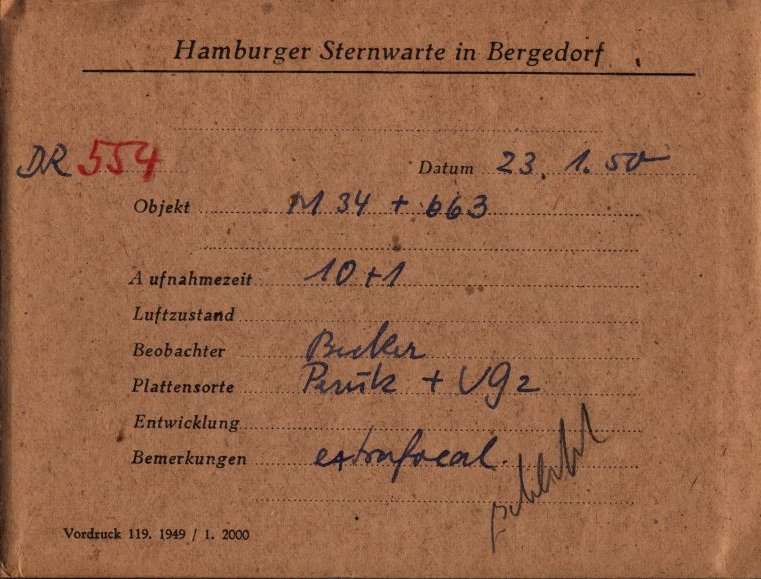 Hamburger Sternwarte in Bergedorf
DR 554 Datum 23. 1. 50
Objekt M 34 + 663
Aufnahmezeit 10+1
Luftzustand
Beobachter Becker
Plattensorte + VG2
Entwicklung
Bemerkungen extrafocal.
schlecht
Vordruck 119. 1949 / 1. 2000